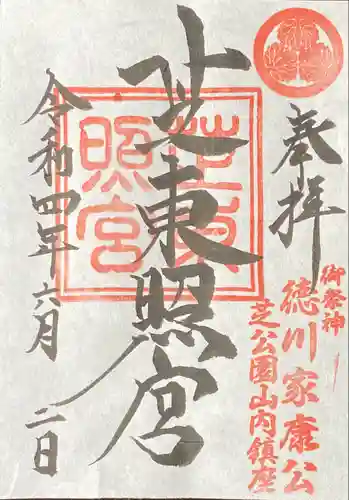 奉拝
御祭神
徳川家康公
芝公園山内鎮座
芝東照宮
芝東照宮
令和四年六月二日